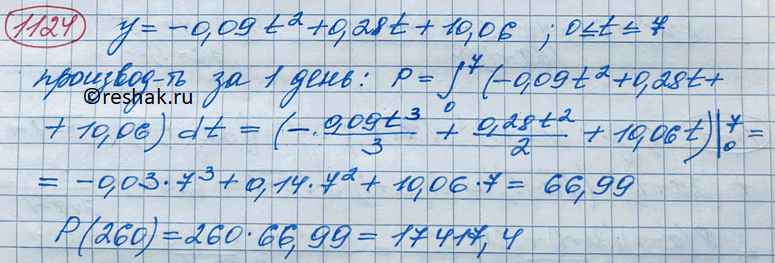 1124 y = -0,09t² + 0,28t + 10,06 ; 0≤t≤7
производ-ть за 1 день: P = ∫₀⁷ (-0,09t² + 0,28t +
©reshak.ru
+ 10,06) dt = (-0,09t³/3 + 0,28t²/2 + 10,06t)|₀⁷ =
= -0,03·7³ + 0,14·7² + 10,06·7 = 66,99
P(260) = 260·66,99 = 17417,4